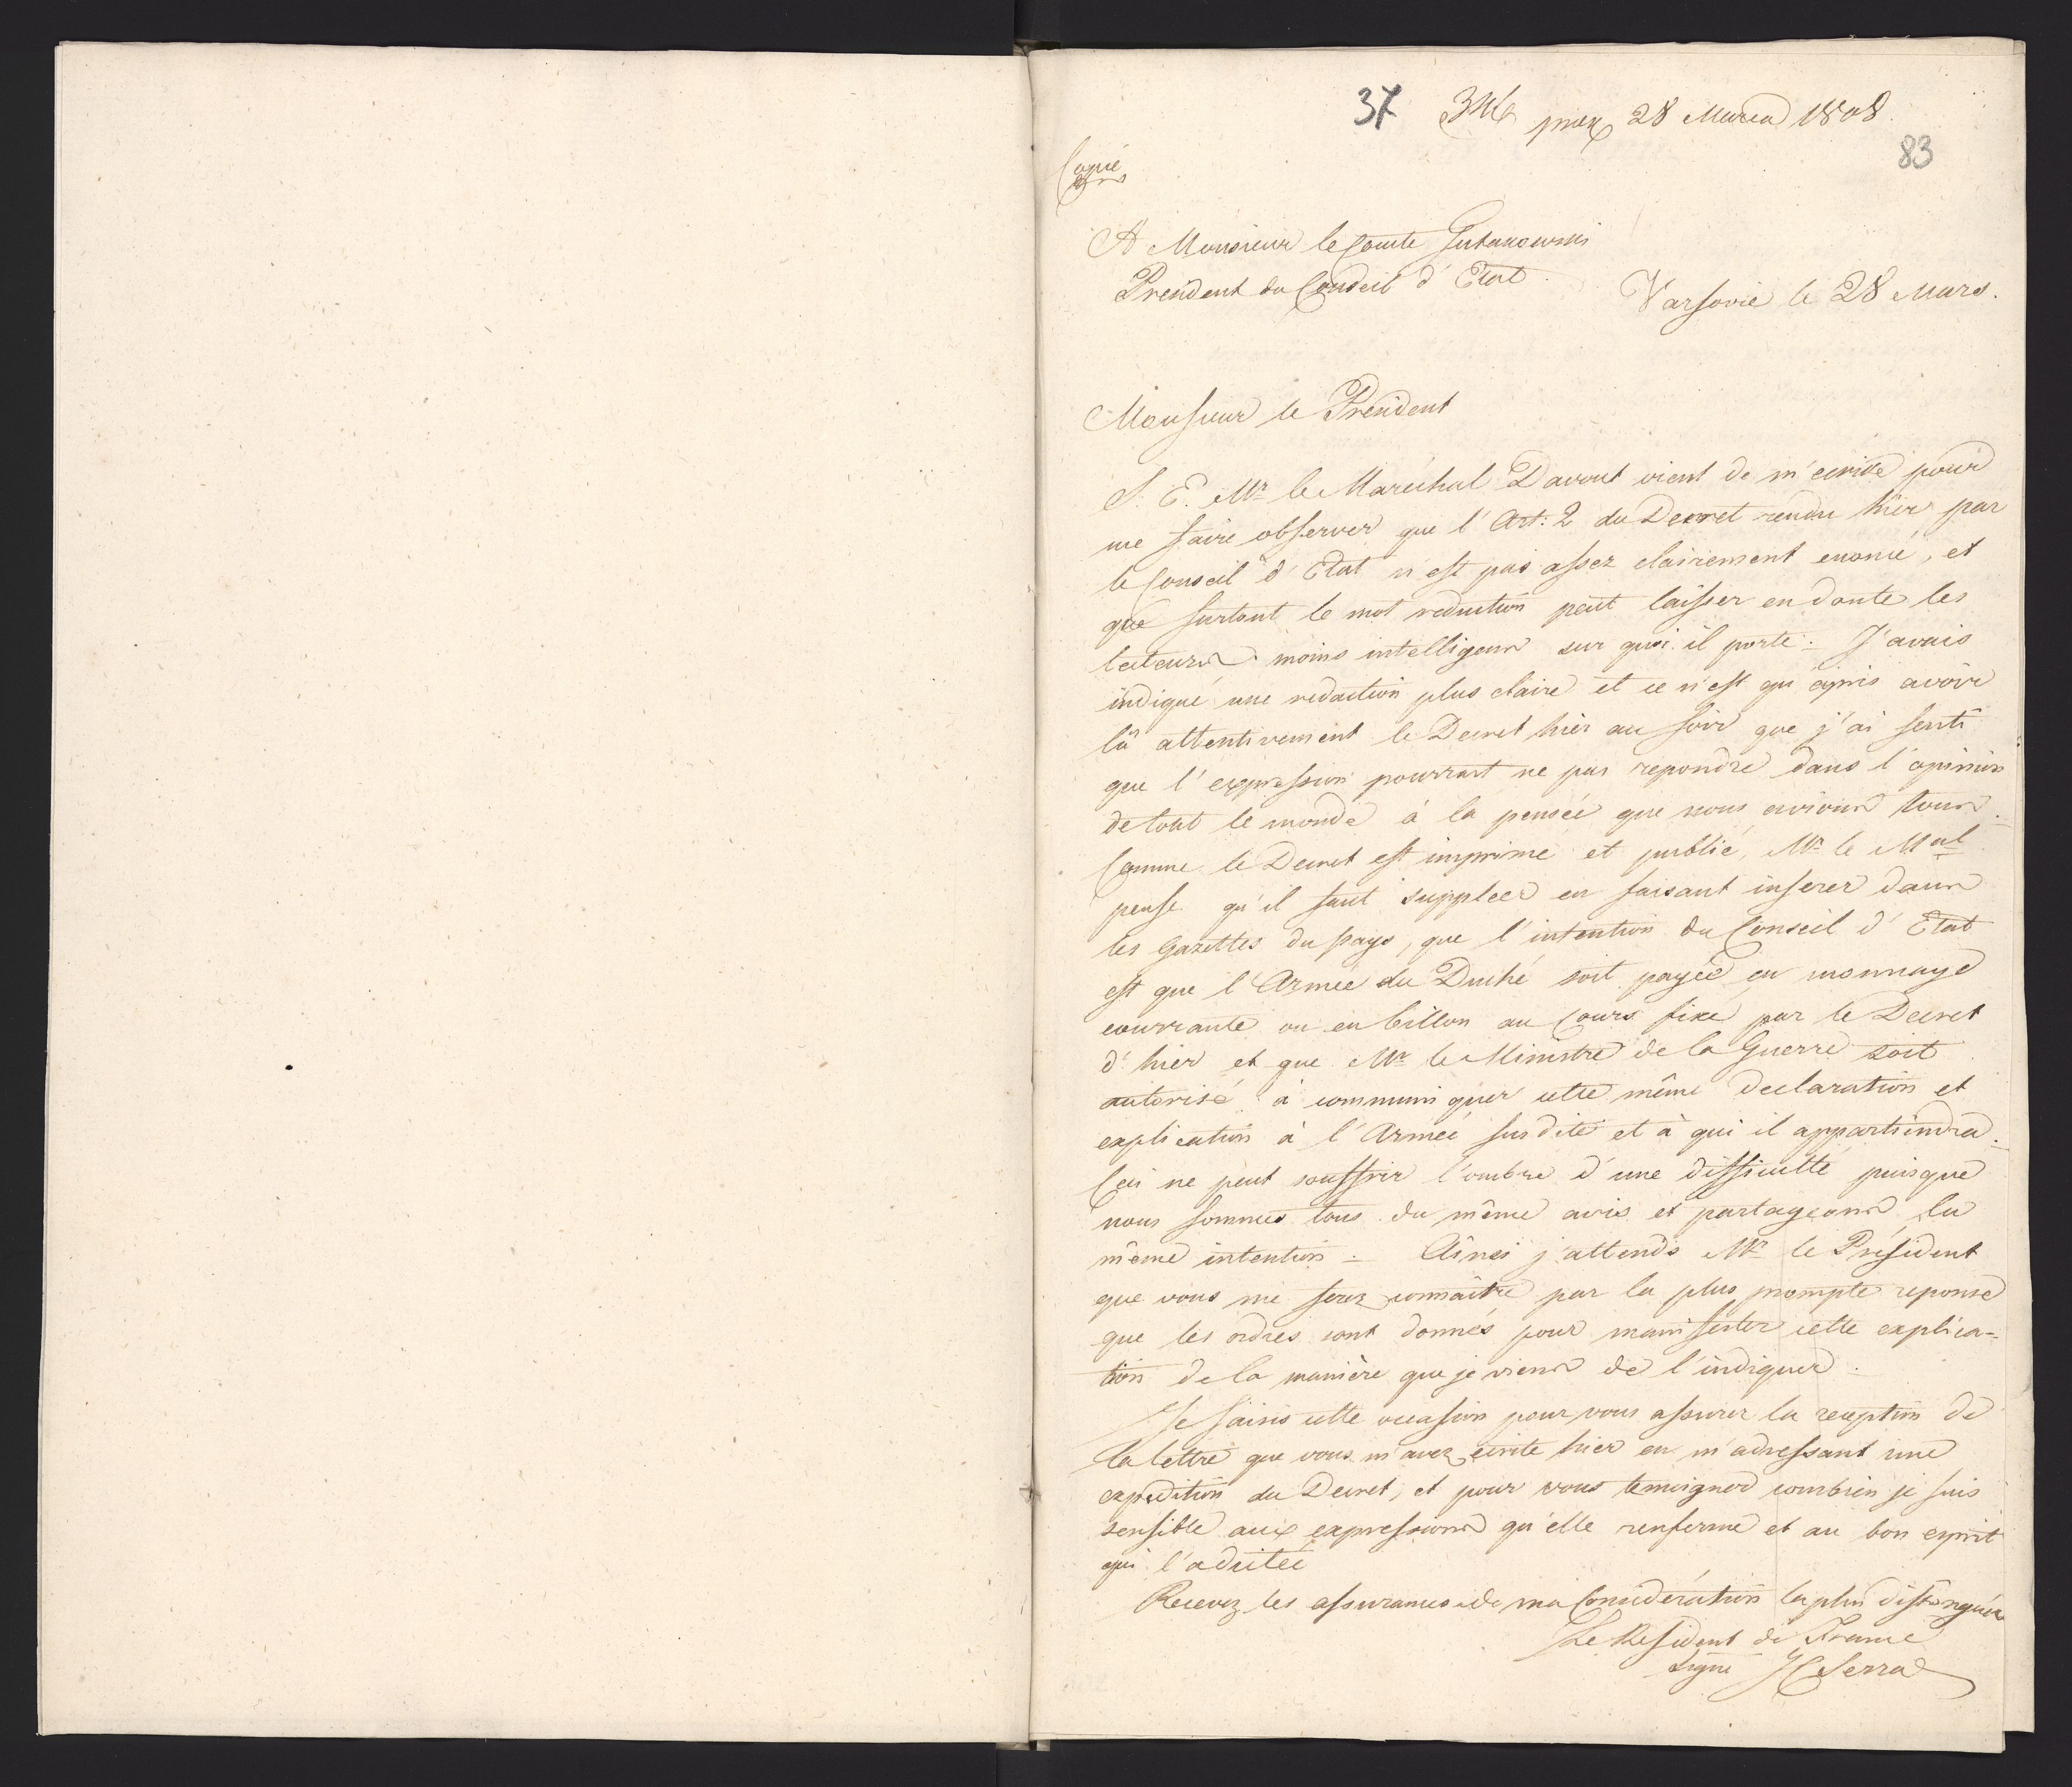 37 346 prae 28 Marca 1808.
83
Copie
A Monsieur le Comte Gutakowski
President du Conseil d'Etat.
Varsovie le 28 Mars.
Monsieur le President
S. E. Mr le Maréchal Davout vient de m'ecrire pour
me faire observer que l'Art: 2 du Decret rendu hier par
le Conseil d'Etat n'est pas assez clairement enoncé, et
que surtout le mot reduction peut laisser en doute les
lecteurs moins intelligens sur quoi il porte. J'avais
indiqué une redaction plus claire et ce n'est qu'après avoir
lû attentivement le Decret hier au soir que j'ai senti
que l'expression pourrait ne pas repondre dans l'opinion
de tout le monde à la pensée que nous avions tous.
Comme le Decret est imprimé et publié, Mr le Mal
pense qu'il faut suppleer en faisant inserer dans
les Gazettes du pays, que l'intention du Conseil d'Etat
est que l'Armée du Duché soit payée en monnaye
courrante ou en billon au Cours fixé par le Decret
d'hier et que Mr le Ministre de la Guerre soit
autorisé à communiquer cette même declaration et
explication à l'Armée susdite et à qui il appartiendra.
Ceci ne peut souffrir l'ombre d'une difficulté puisque
nous sommes tous du même avis et partageons la
même intention. Ainsi j'attends Mr le Président
que vous me ferez connaître par la plus prompte reponse
que les ordres sont donnés pour manifester cette explica-
tion de la manière que je viens de l'indiquer.
Je saisis cette occasion pour vous assurer la reception de
la lettre que vous m'avez écrite hier en m'adressant une
expedition du Decret, et pour vous temoigner combien je suis
sensible aux expressions qu'elle renferme et au bon esprit
qui l'a dictée
Recevez les assurances de ma Considération la plus distinguée
Le Resident de France
signé JC Serra